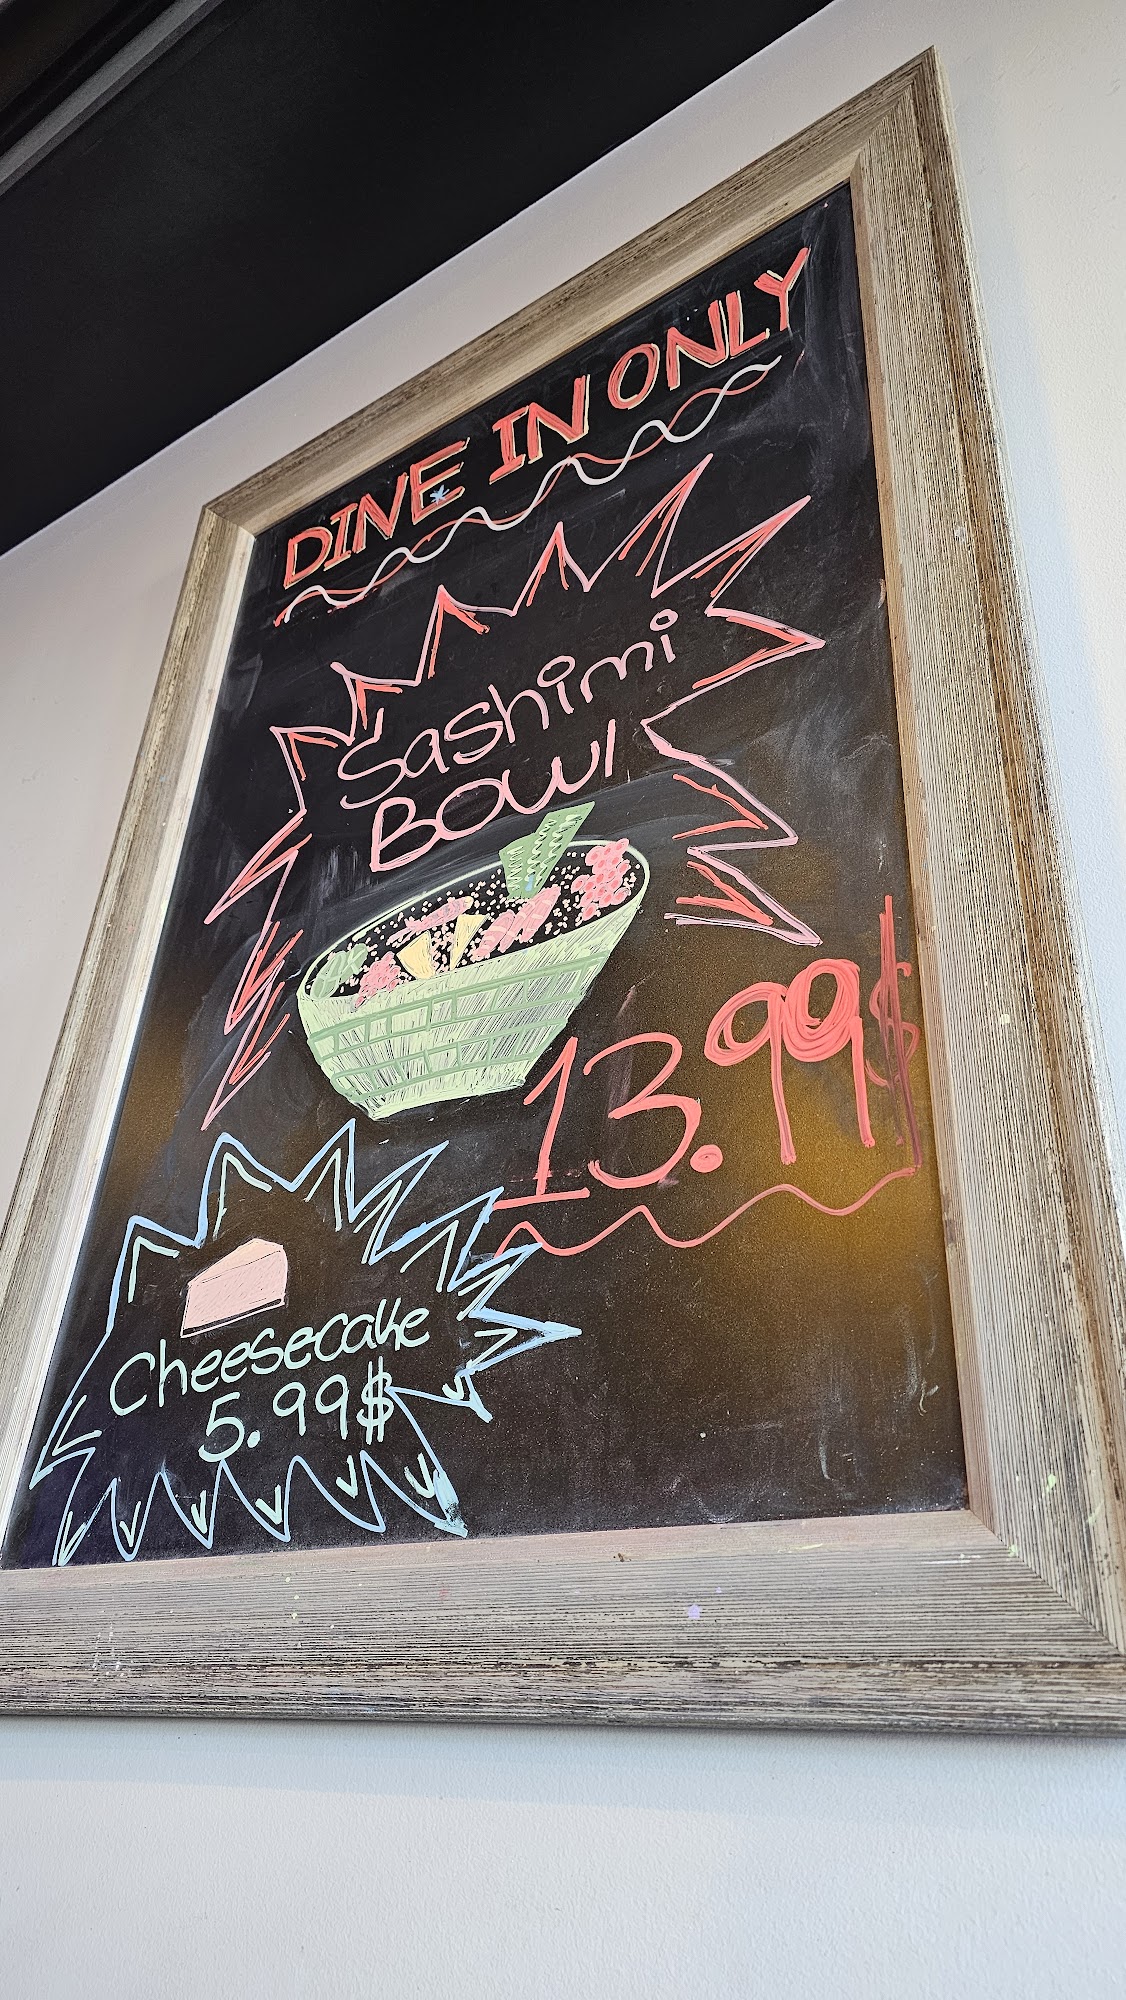 DINE IN ONLY
Sashimi
BOWl
13.99$
Cheesecake
5.99$